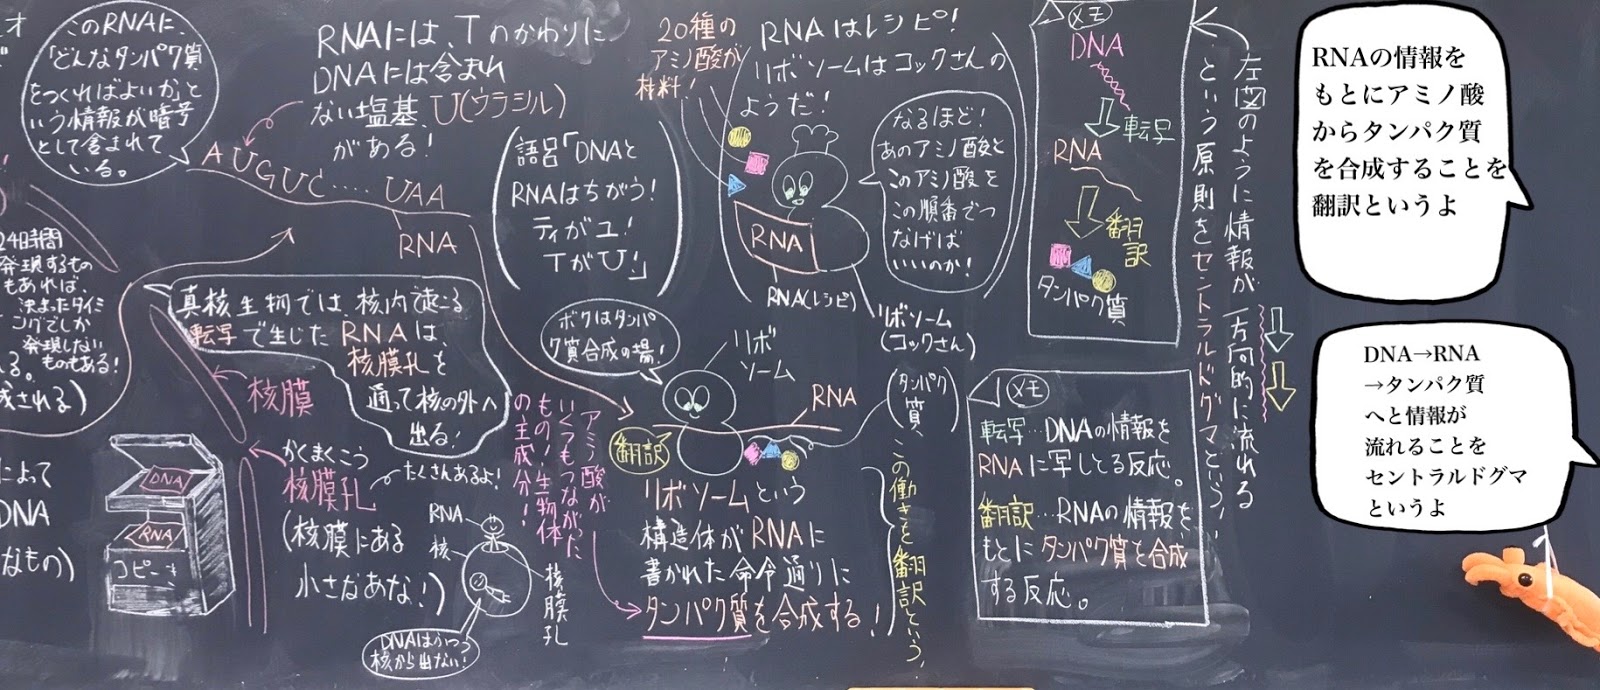 オ
このRNAに、
「どんなタンパク質
をつくればよいか」と
いう情報が暗号
として含まれて
いる。
RNAには、Tのかわりに
DNAには含まれ
ない塩基、U(ウラシル)
がある!
AUGUC‥‥UAA
RNA
語呂「DNAと
RNAはちがう!
ティがユ!
TがU!」
24時間
発現するもの
もあれば、
決まったタイミ
ングでしか
発現しない
ものもある!
る。
成される)
によって
DNA
なもの)
真核生物では、核内で起こる
転写で生じたRNAは、
核膜孔を
通って核の外へ
出る!
核膜
かくまくこう
核膜孔
たくさんあるよ!
(核膜にある
小さなあな!)
DNA
RNA
コピーき
RNA
核
核膜孔
DNAはふつう
核から出ない!
20種の
アミノ酸が
材料!
RNAはレシピ!
リボソームはコックさんの
ようだ!
なるほど!
あのアミノ酸と
このアミノ酸を
この順番でつ
なげば
いいのか!
RNA
RNA(レシピ)
リボソーム
(コックさん)
ボクはタンパ
ク質合成の場!
リボ
ソーム
RNA
(タンパク質)
翻訳
アミノ酸が
いくつもつながった
もの!生物体
の主成分!
リボソームという
構造体がRNAに
書かれた命令通りに
タンパク質を合成する!
この働きを翻訳という。
メモ
DNA
転写
RNA
翻訳
タンパク質
左図のように情報が一方向的に流れる
という原則をセントラルドグマという。
メモ
転写…DNAの情報を
RNAに写しとる反応。
翻訳…RNAの情報を
もとにタンパク質を合成
する反応。
RNAの情報を
もとにアミノ酸
からタンパク質
を合成することを
翻訳というよ
DNA→RNA
→タンパク質
へと情報が
流れることを
セントラルドグマ
というよ